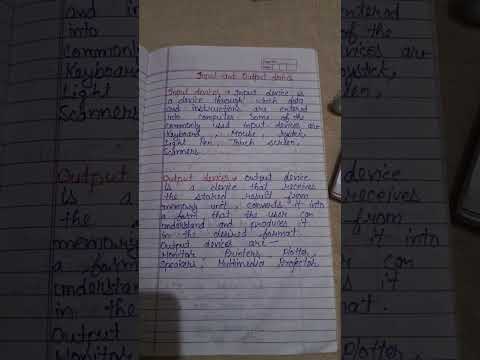 Input and Output devices
Input devices → Input device is
a device through which data
and instructions are entered
into computer. Some of the
commonly used input devices are
Keyboard, Mouse, Joystick,
Light Pen, Touch screen,
Scanners
Output devices → Output device
is a device that receives
the stored result from
memory unit, converts it into
a form, that the user can
understand and produces it
in the desired format.
Output devices are —
Monitors, Printers, Plotter,
Speakers, Multimedia Projector